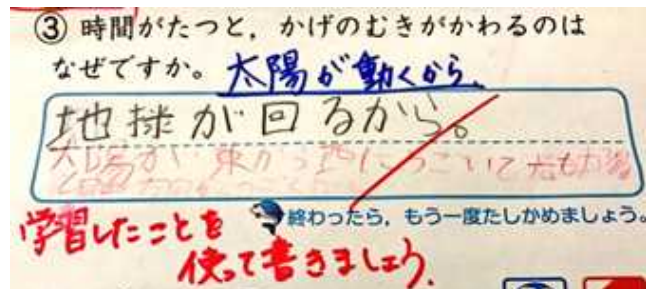 ③ 時間がたつと，かげのむきがかわるのは
なぜですか。太陽が動くから。
地球が回るから。
終わったら，もう一度たしかめましょう。
学習したことを
使って書きましょう。